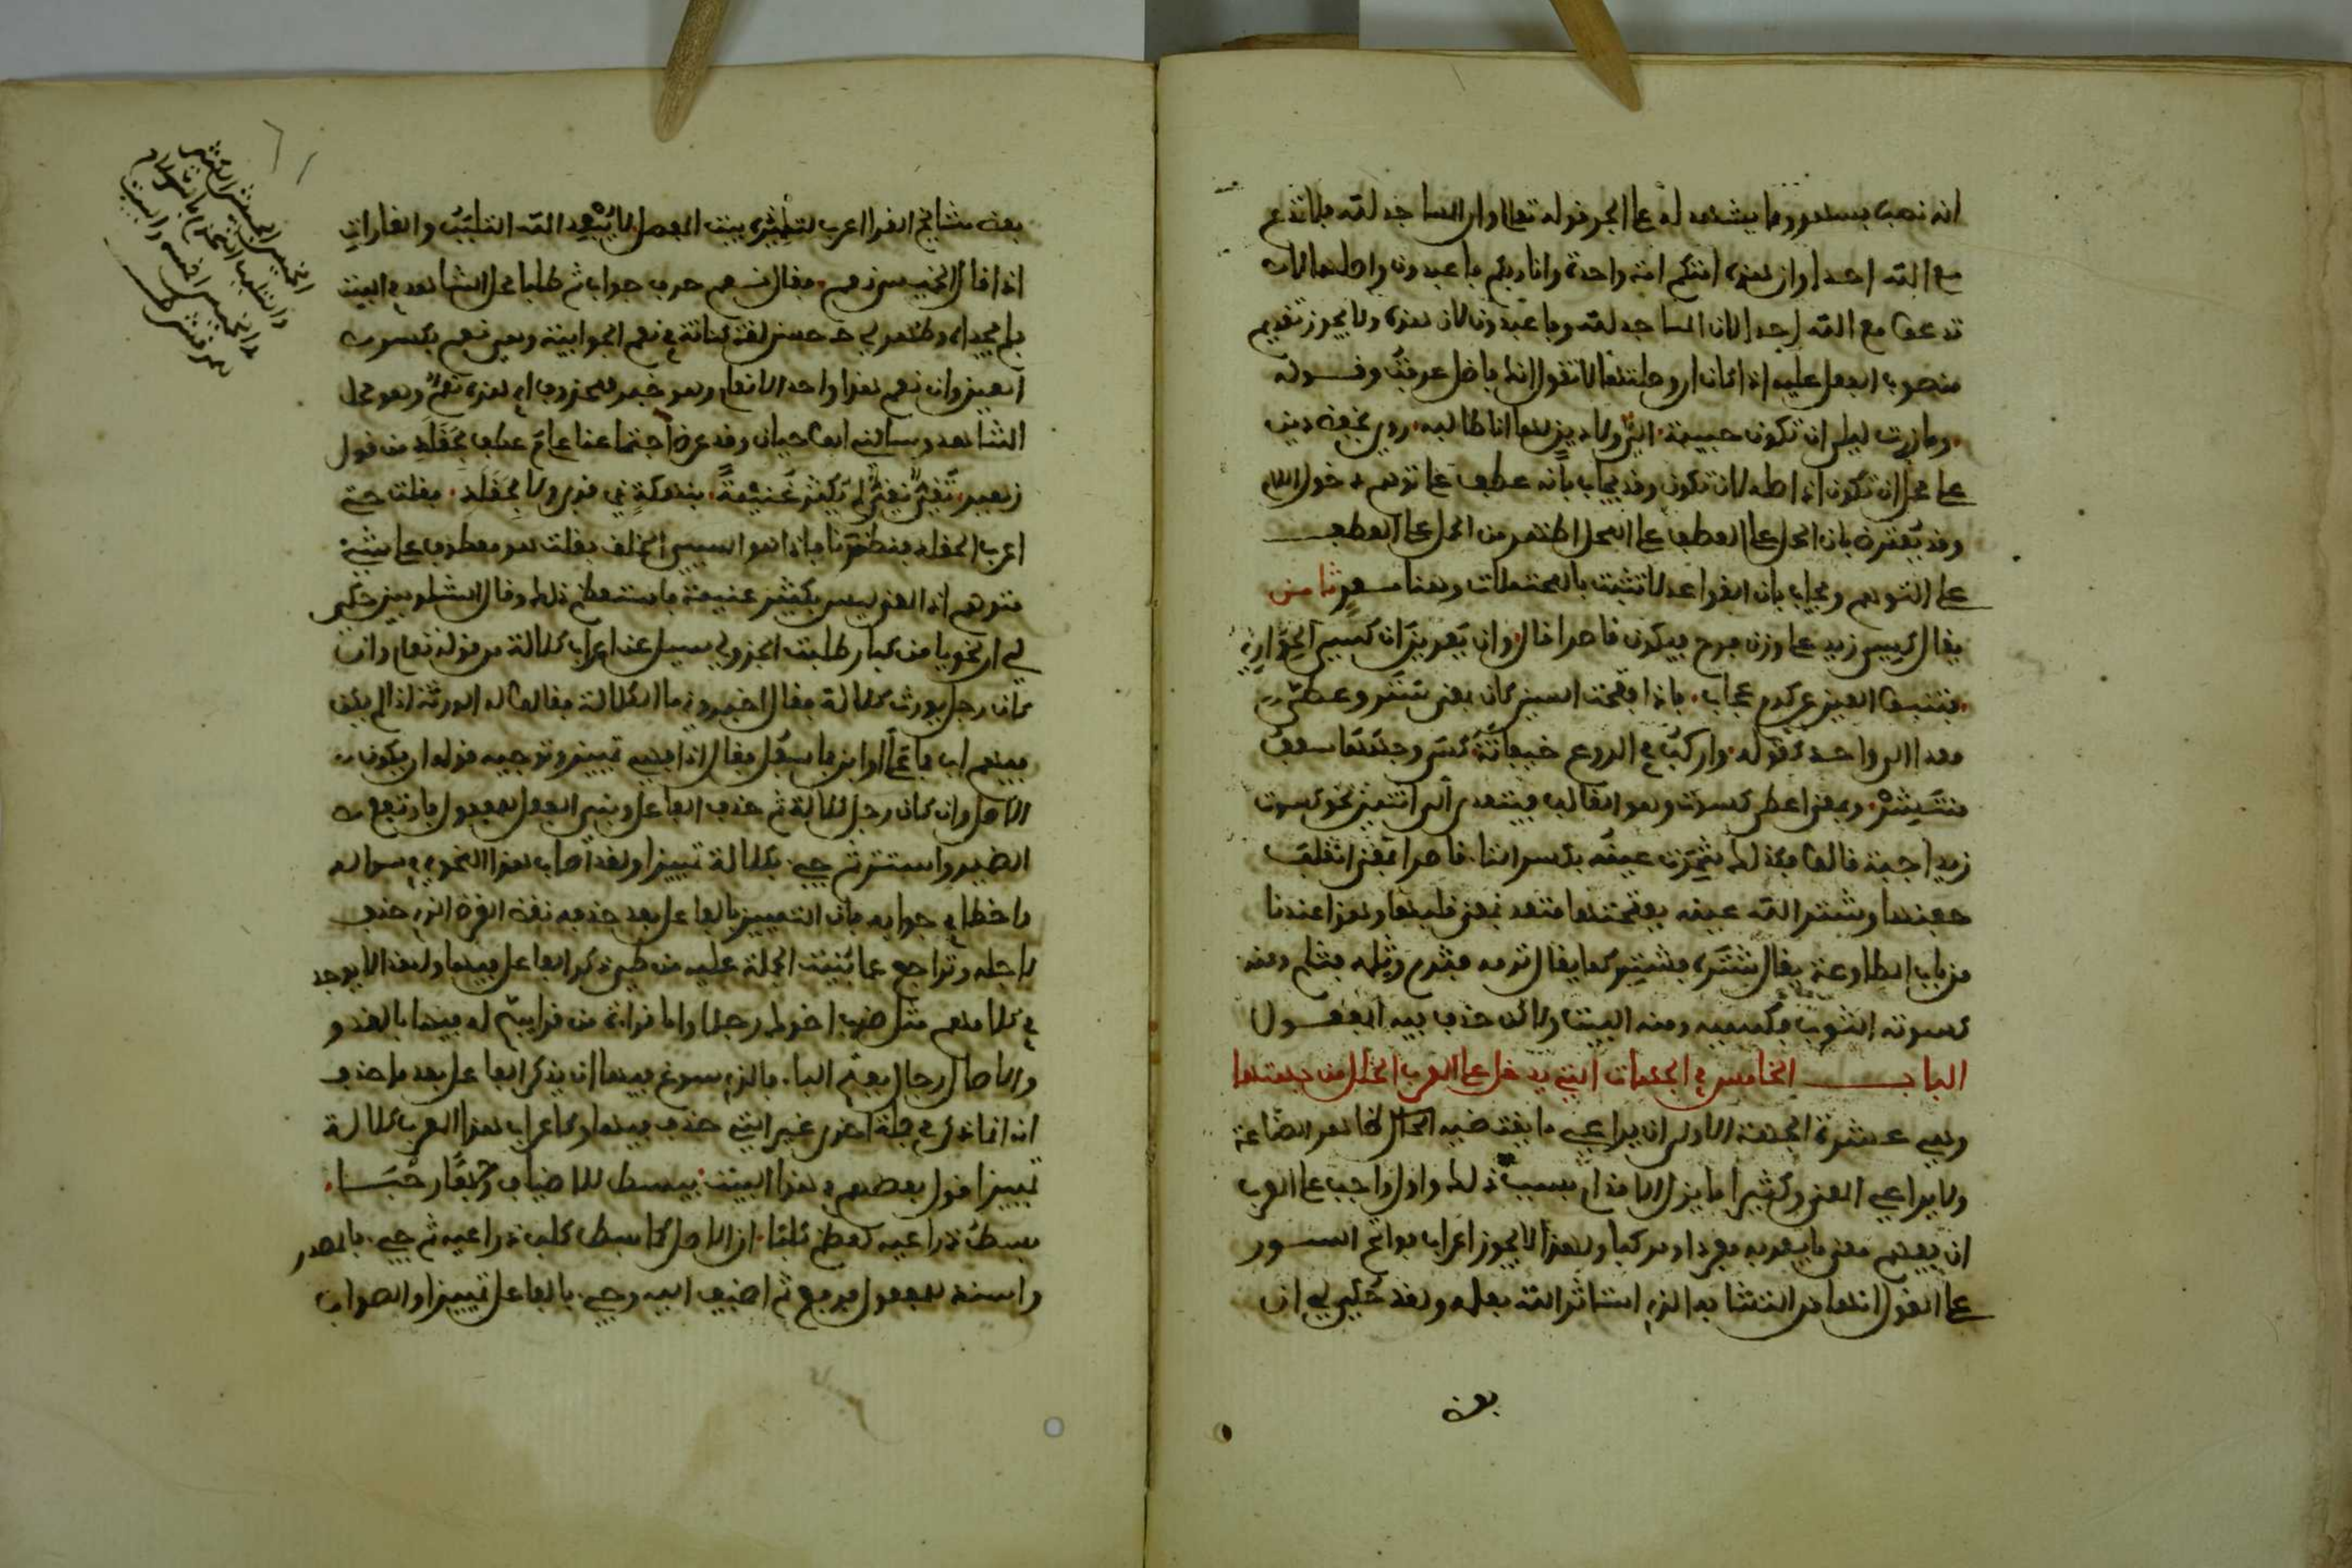 انه نصب بسعدو ومما يشهد له على الجر قوله تعالى وان المساجد لله فلا تدعوا
مع الله احدا وان هذه امتكم امة واحدة وانا ربكم فاعبدون واصلهما لا
تدعوا مع الله احدا لان المساجد لله وفاعبدون لان هذه ولا يجوز تقديم
منصوب الفعل عليه اذا كان ان وصلتها لا تقول انك فاضل عرفت وقوله
وما زرت ليلى ان تكون حبيبة الي ولا دين بها انا طالبه روي بخفض دين
على محل ان تكون اذ اصله لان تكون وقد يجاب بانه عطف على توهم دخول اللام
وقد يعترض بان الحمل على العطف على المحل اظهر من الحمل على العطف
على التوهم ويجاب بان القواعد لا تثبت بالمحتملات وهنا معد ثامن
يقال كسي زيد على وزن فرح فيكون قاصرا قال وان يعرين ان كسي الجواري
فتنبو العين عن كرم عجاف فاذا فتحت السين كان بمعنى ستر وغطى
تعدى الى واحد كقوله واركب في الروع خيفانة كسى وجهها سعف
منتشر وبمعنى اعطى كسوة وهو الغالب فيتعدى الى اثنين نحو كسوت
زيدا جبة قالوا وكذلك شترت عينه بكسر التاء قاصرا بمعنى انقلب
جفنها وشتر الله عينه بفتحها متعد بمعنى قلبها وهذا عندنا
من باب المطاوعة يقال شتره فشتر كما يقال ثرمه فثرم وثلمه فثلم ومنه
كسوته الثوب فكسيه ومنه البيت ولكن حذف فيه المفعول
الباب الخامس في الجهات التي يدخل على المعرب الخلل من جهتها
وهي عشرة الجهة الاولى ان يراعي ما يقتضيه ظاهر الصناعة
ولا يراعي المعنى وكثيرا ما تزل الاقدام بسبب ذلك واول واجب على المعرب
ان يفهم معنى ما يعربه مفردا ومركبا ولهذا لا يجوز اعراب فواتح السور
على القول انها من المتشابه الذي استاثر الله بعلمه ولقد حكي لي ان
بعض
بعض مشايخ الاقراء اعرب لتلميذه بيت المفصل لا يبعد الله التلبب والغارات
اذ قال الخميس نعم فقال نعم حرف جواب ثم طلبا محل الشاهد في البيت
فلم يجداه وظهر لي ح حسن لغة كنانة في نعم الجوابية وهي نعم بكسر
العين وان نعم هنا واحد الانعام وهو خبر لمحذوف اي هذه نعم وهو محل
الشاهد وسالني ابو حيان وقد عرض اجتماعنا علام عطف بحقلد من قول
زهير تقي نقي لم يكثر غنيمة بنهكة ذي قربى ولا بحقلد فقلت حتى
اعرف الحقلد فنظرنا فاذا هو السيئ الخلق فقلت هو معطوف على شيء
متوهم اذ المعنى ليس بمكثر غنيمة فاستعظم ذلك وقال الشلوبين حكي
لي ان نحويا من كبار طلبة الجزولي سئل عن اعراب كلالة من قوله تعالى وان
كان رجل يورث كلالة فقال اخبروني ما الكلالة فقالوا له الورثة اذا لم يكن
فيهم اب فما علا او ابن فما سفل فقال اذا فهي تمييز وتوجيه قوله ان يكون
الاصل وان كان رجل كلالة ثم حذف الفاعل وبني الفعل للمفعول فارتفع
الضمير واستتر ثم جيء بكلالة تمييزا ولقد اصاب هذا النحوي في سؤاله
واخطا في جوابه فان التمييز بالفاعل بعد حذفه نقض الغرض الذي حذف
لاجله وتراجع عما بنيت الجملة عليه من طي ذكر الفاعل فيها ولهذا لا يوجد
في كلامهم مثل ضرب اخوك رجلا واما قراءة من قرا يسبح له فيها بالغدو
والاصال رجال بفتح الباء فالذي سوغ فيها ان يذكر الفاعل بعد ما حذف
انه انما ذكر في جملة اخرى غير التي حذف فيها وكاعراب هذا المعرب كلالة
تمييزا قول بعضهم في هذا البيت يبسط للاضياف وجها رحبا
بسط ذراعيه لعظم كلبا ان الاصل كما بسط كلب ذراعيه ثم جيء بالمصدر
واسند للمفعول فرفع ثم اضيف اليه وجيء بالفاعل تمييزا والصواب